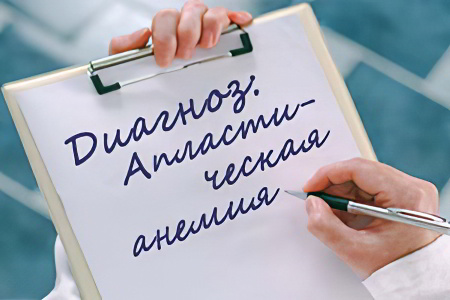 Диагноз:
Апласти-
ческая
анемия